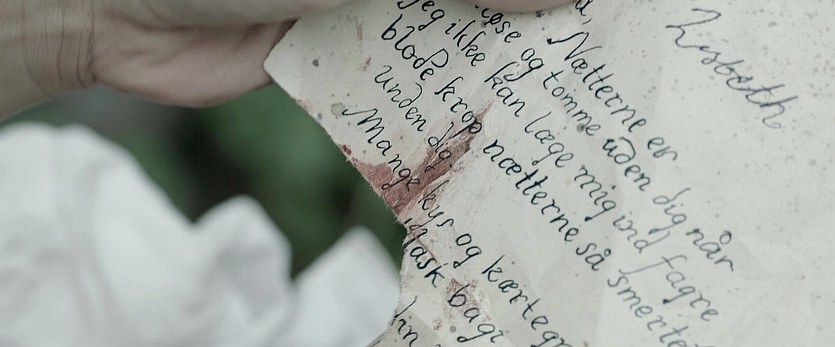 Lisbeth
Nætterne er
løse og tomme uden dig når
jeg ikke kan læge mig ind fagre
blode krop nætterne så smerte
unden dig.
Mange kys og kærtegn
lask bagi